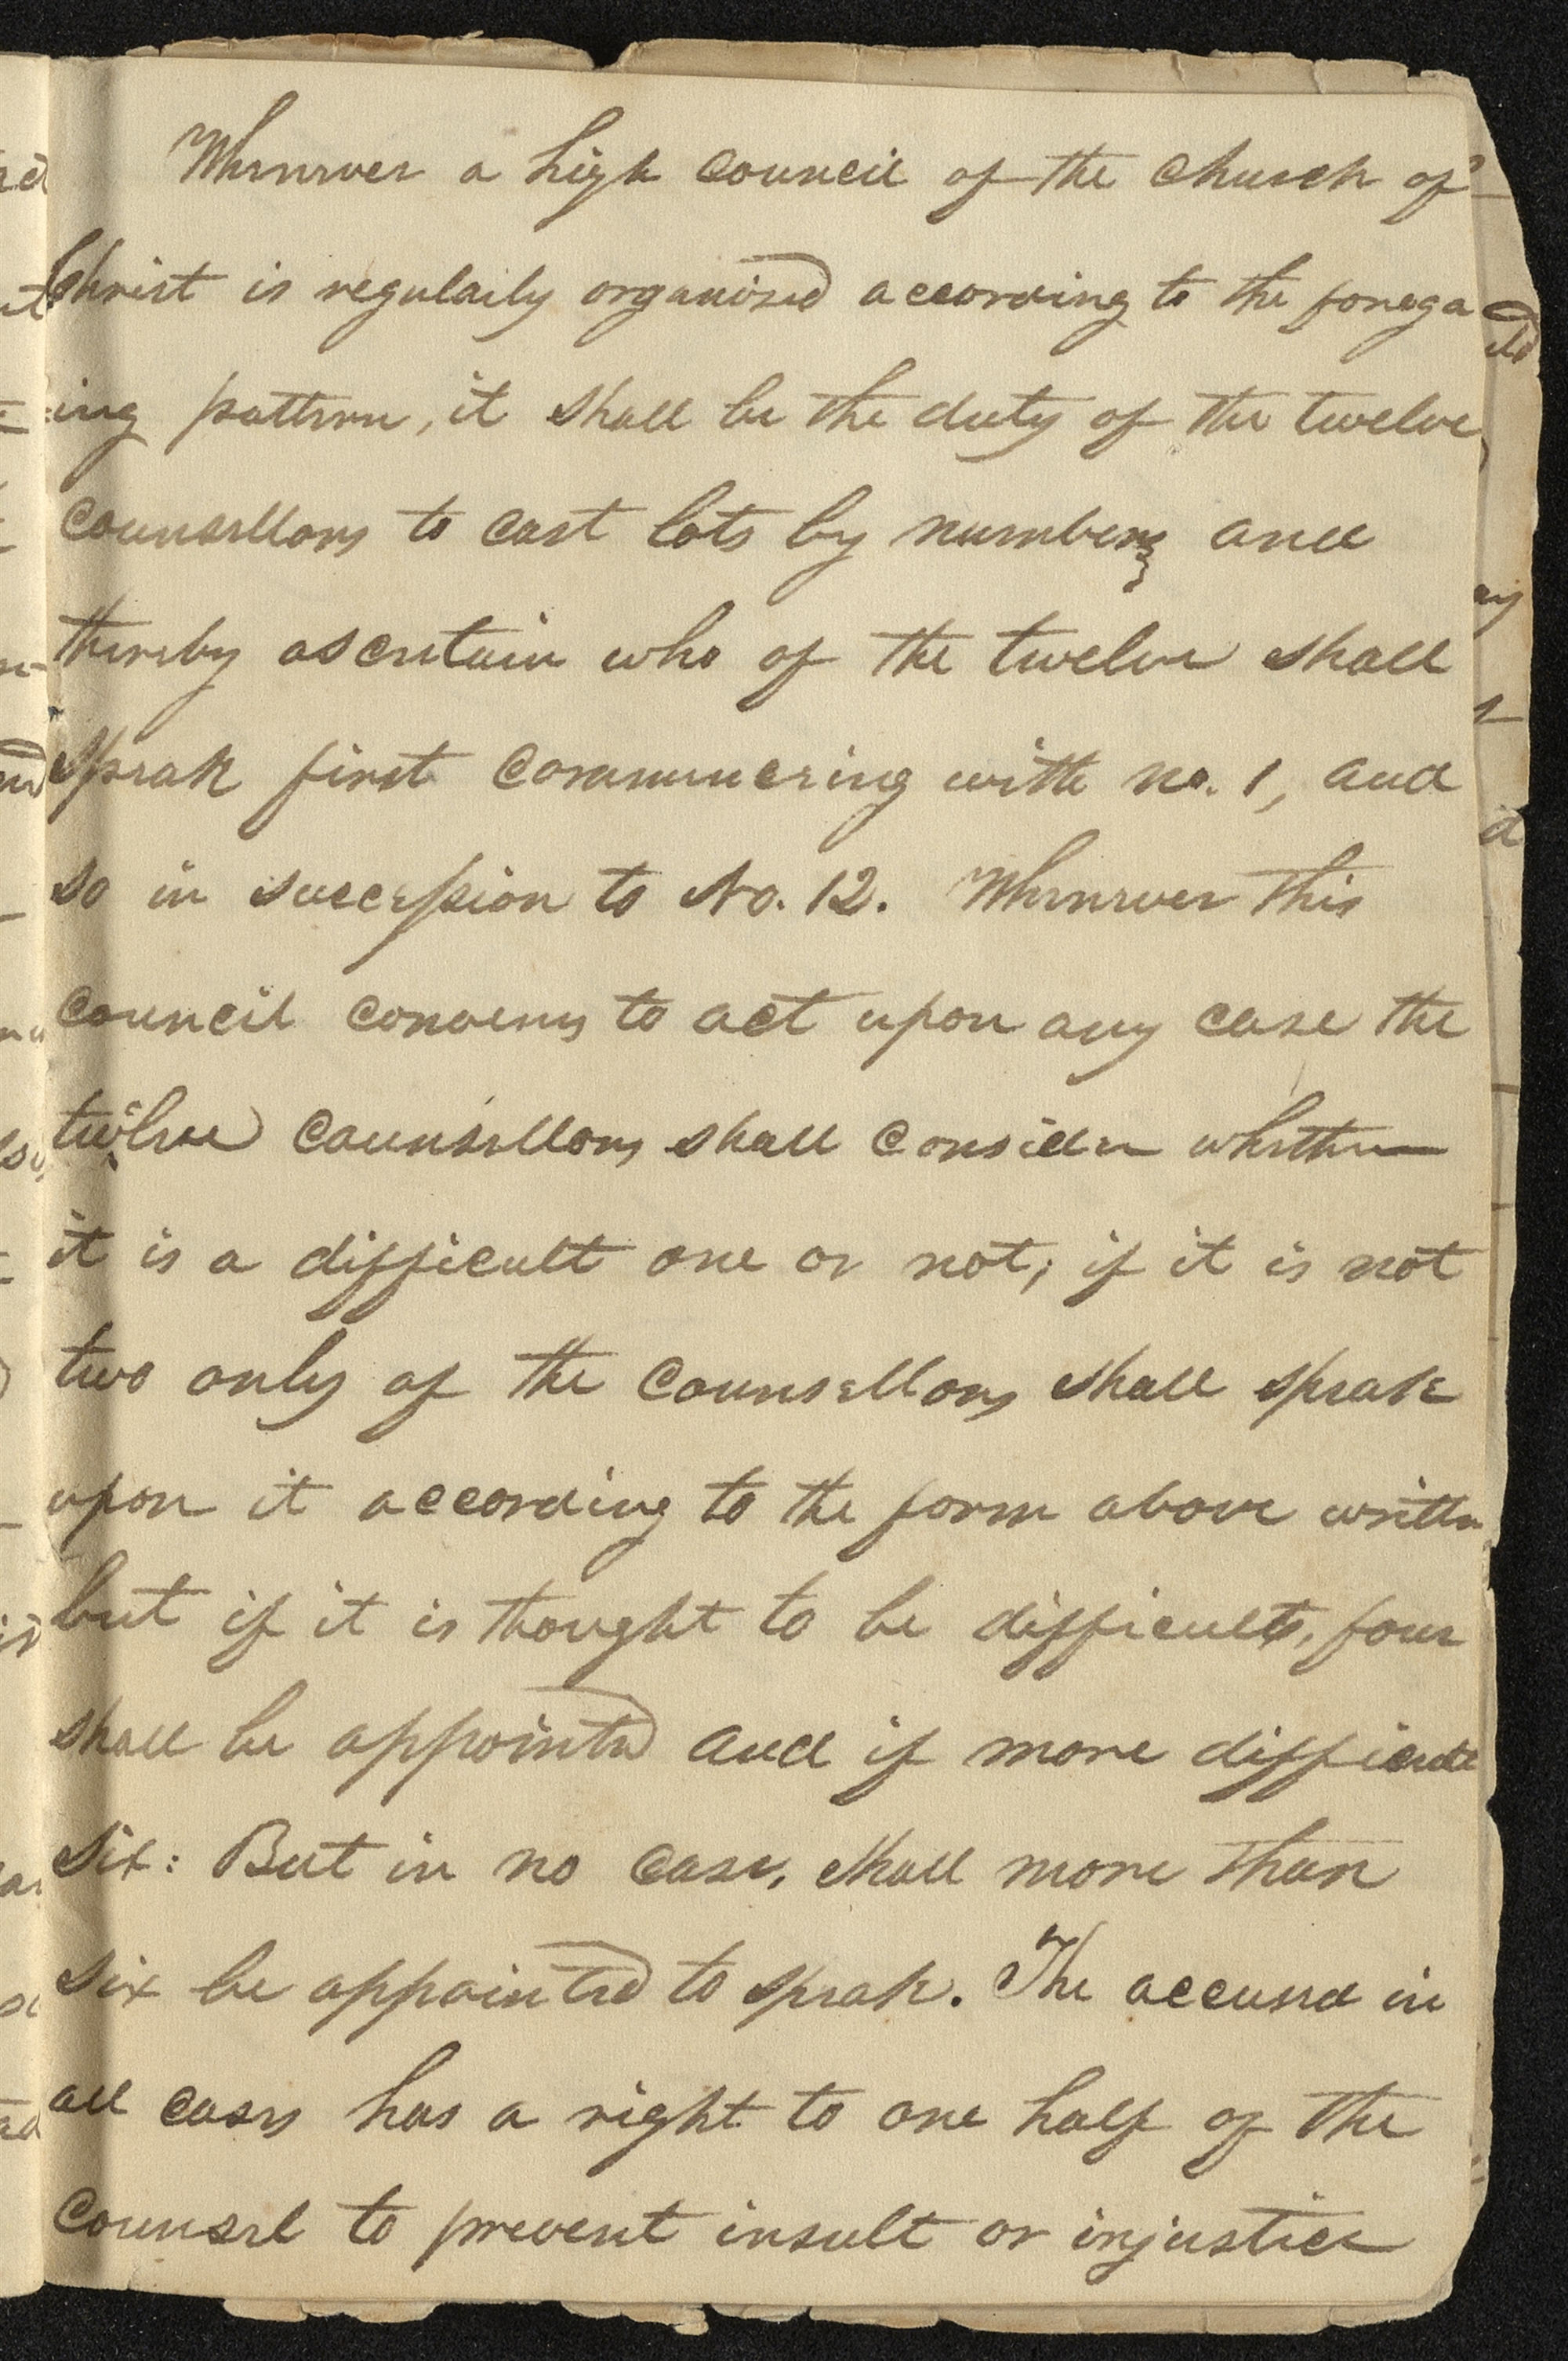 Whenever a high council of the church of
Christ is regularly organized according to the forego
ing pattern, it shall be the duty of the twelve
counsellors to cast lots by numbers and
thereby ascertain who of the twelve shall
speak first commencing with no. 1, and
so in succession to No. 12. Whenever this
council convenes to act upon any case the
twelve counsellors shall consider whether
it is a difficult one or not; if it is not
two only of the counsellors shall speak
upon it according to the form above written
but if it is thought to be difficult, four
shall be appointed and if more difficult
six: But in no case, shall more than
six be appointed to speak. The accused in
all cases has a right to one half of the
counsel to prevent insult or injustice